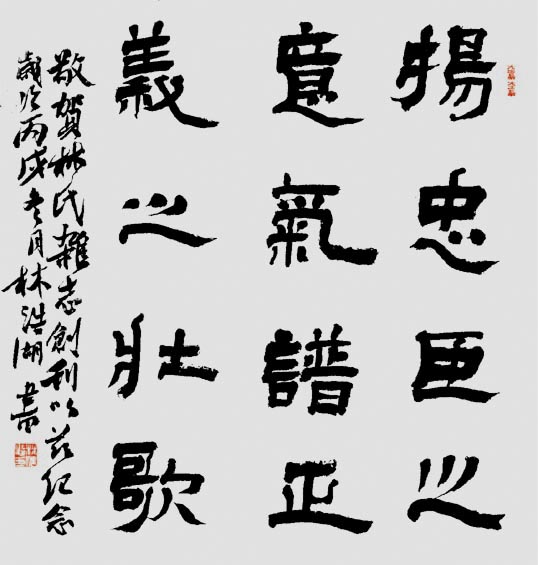 揚忠臣之
意氣譜正
義之壯歌
敬賀林氏雜志創刊以茲紀念
歲次丙戌冬月林浩湖書